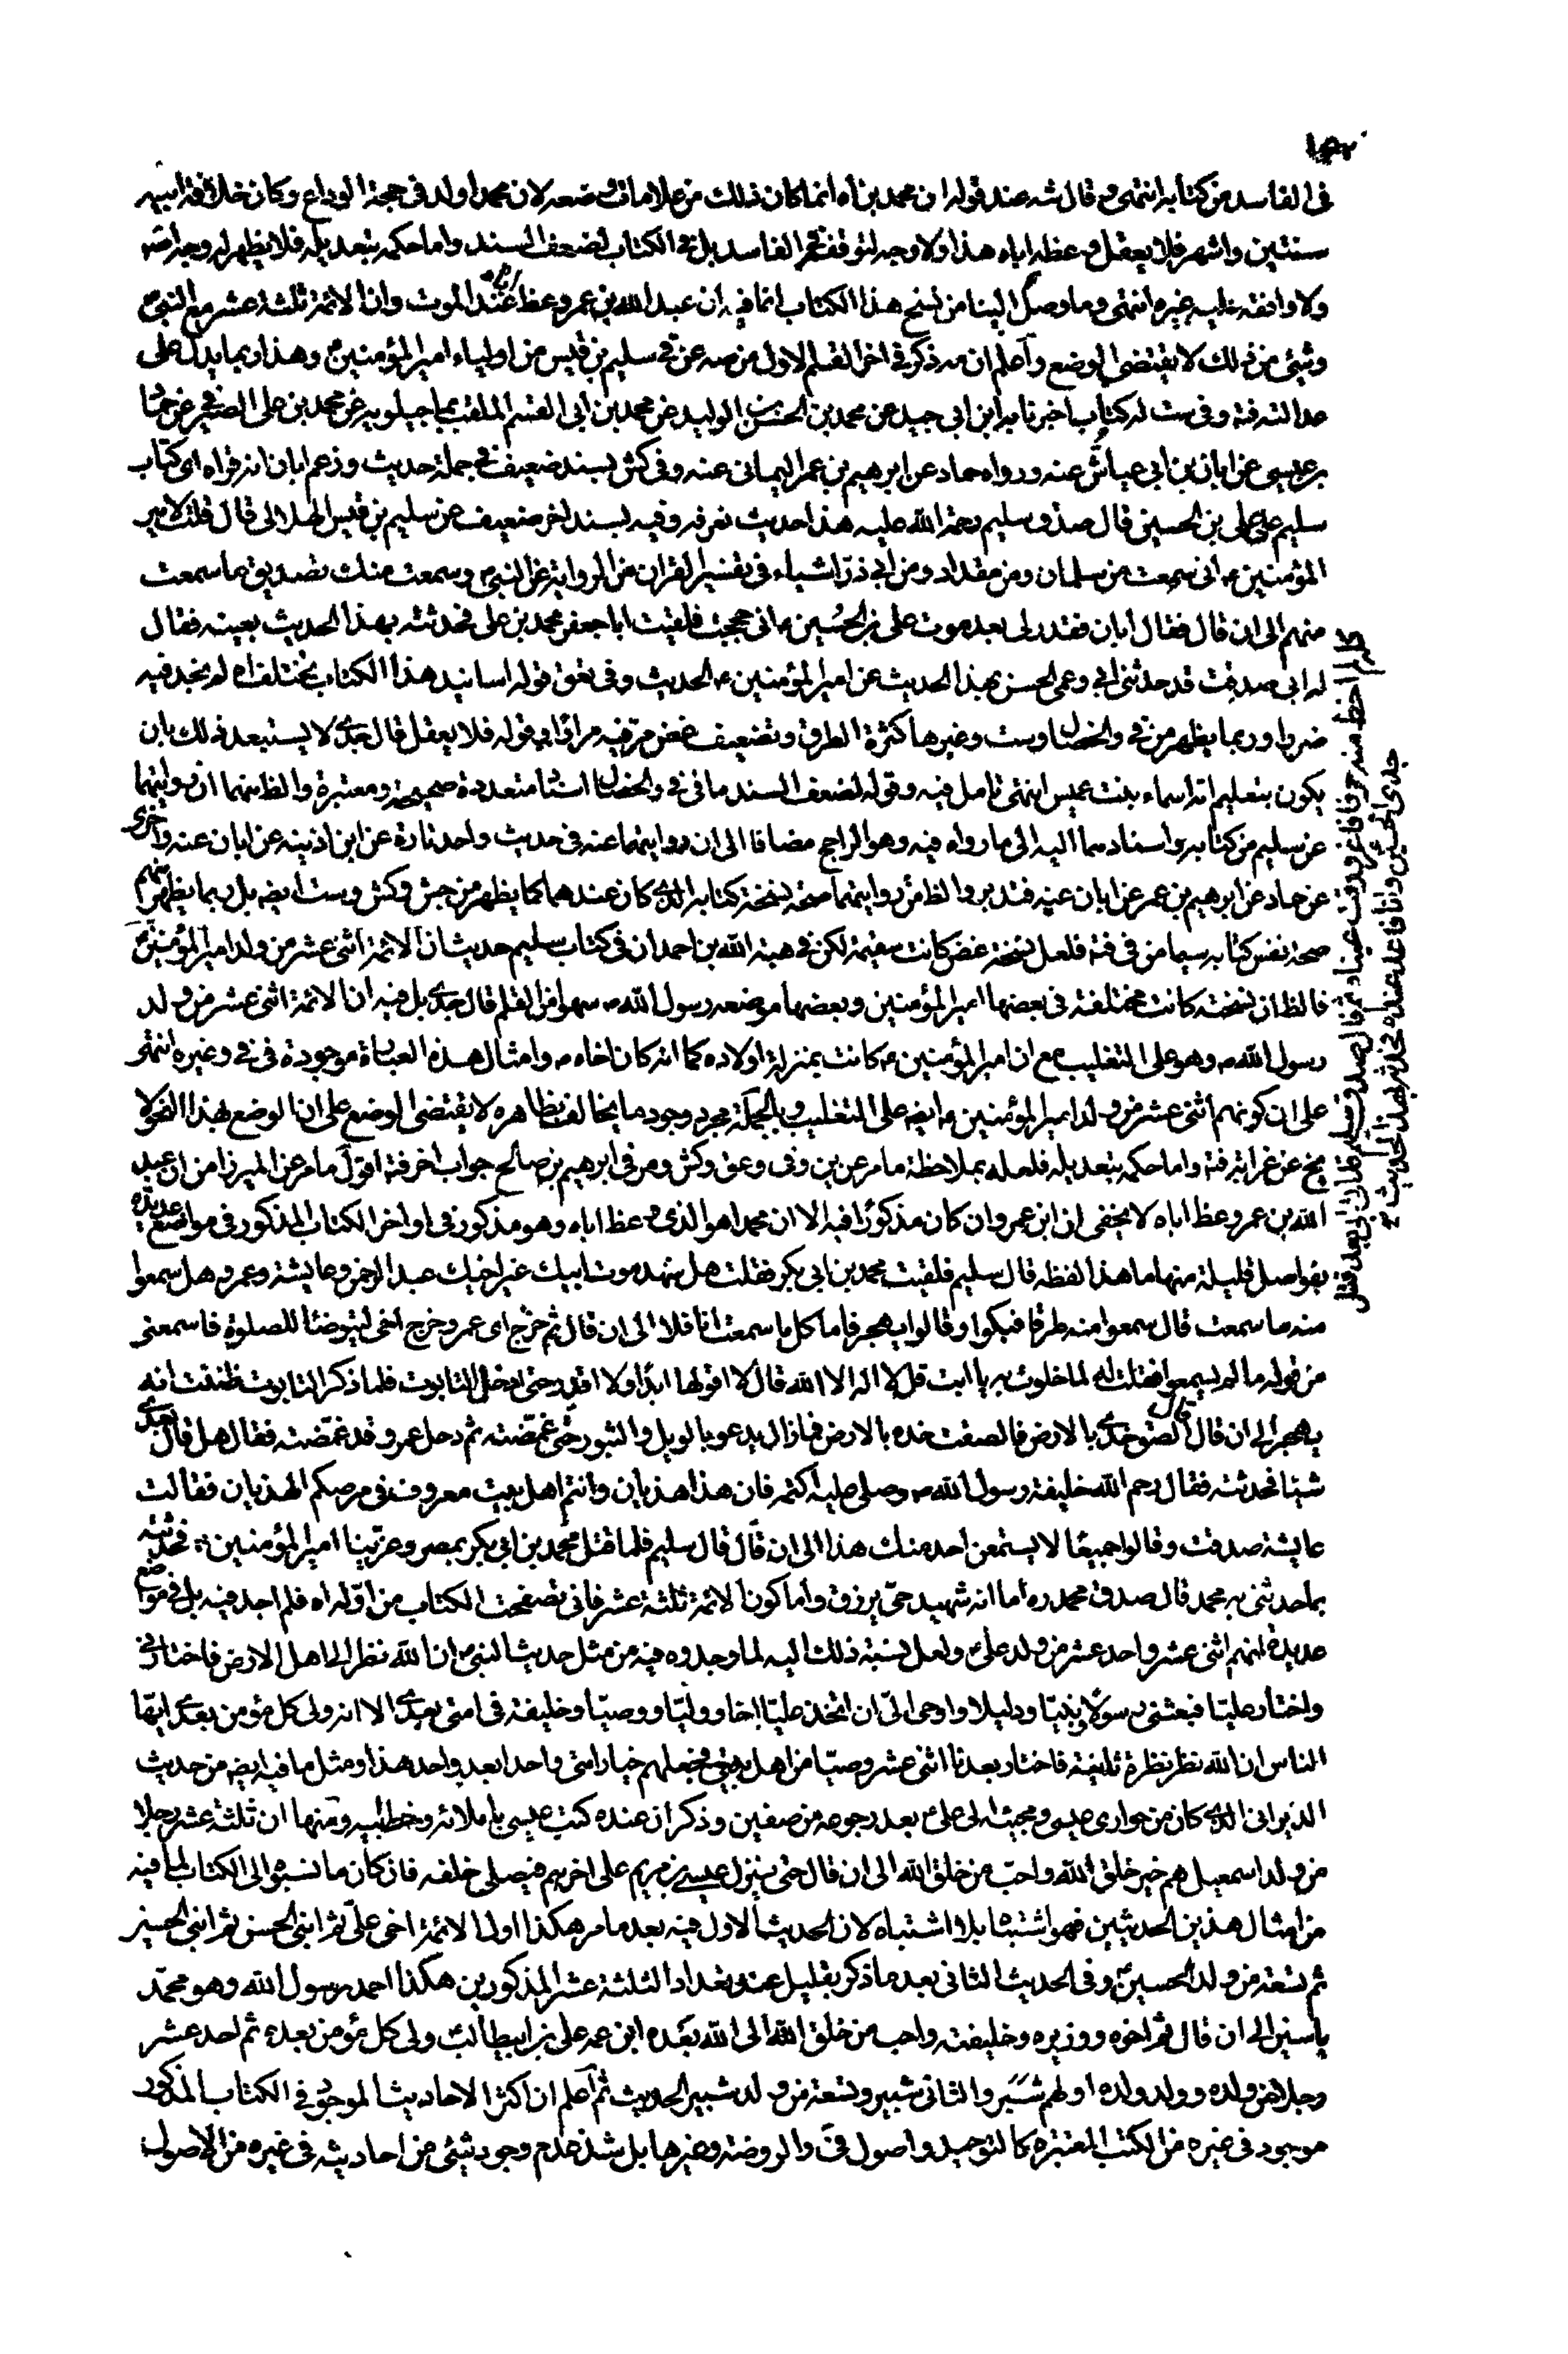 ١٥٢
في الفاسد من كتابه انتهى و قال شه عند قوله ان محمد بن اه انما كان ذلك من علامات وضعه لان محمدا ولد في حجة الوداع و كان خلافة ابيه
سنتين و اشهر فلا يعقل وعظه اباه هذا و لا وجه لتوقفه في الفاسد بل في الكتاب لضعف السند و اما حكمه بتعديله فلا يظهر له وجه اصه
و لا وافقه عليه غيره انتهى و ما وصل الينا من نسخ هذا الكتاب انما فيه ان عبد الله بن عمر وعظ اباه عند الموت و ان الائمة ثلثة عشر مع النبي ص
و شئ من ذلك لا يقتضي الوضع و اعلم ان مه ذكر في اخر القسم الاول من صه عن قي سليم بن قيس من اولياء امير المؤمنين ع و هذا ربما يدل على
عدالته فة و في ست له كتاب اخبرنا به ابن ابي جيد عن محمد بن الحسن بن الوليد عن محمد بن ابي القسم الملقب بماجيلويه عن محمد بن علي الصيرفي عن حماد
بن عيسى عن ابان بن ابي عياش عنه و رواه حماد عن ابرهيم بن عمر اليماني عنه و في كش بسند ضعيف في جملة حديث و زعم ابان انه قراه اي كتاب
سليم على علي بن الحسين قال صدق سليم رحمة الله عليه هذا حديث نعرفه و فيه بسند اخر ضعيف عن سليم بن قيس الهلالي قال قلت لامير
المؤمنين ع اني سمعت من سلمان و من مقداد و من ابي ذر اشياء في تفسير القران من الرواية عن النبي ص و سمعت منك تصديق ما سمعت
منهم الى ان قال فقال ابان فقدر لي بعد موت علي بن الحسين ع اني حججت فلقيت ابا جعفر محمد بن علي فحدثته بهذا الحديث بعينه فقال
له ابي صدقت قد حدثني ابي و عمي الحسن بهذا الحديث عن امير المؤمنين ع الحديث و في تعق قوله اسانيد هذا الكتاب تختلف اه لم نجد فيه
ضررا و ربما يظهر من في و الخصال و ست و غيرها كثرة الطرق و تضعيف غض مر فيه مرارا قوله فلا يعقل قال جدي لا يستبعد ذلك بان
يكون بتعليم امه اسماء بنت عميس انتهى تامل فيه و قوله لضعف السند ما في في و الخصال اسنادا متعددة صحيحة و معتبرة و الظ منهما ان روايتهما
عن سليم من كتابه و اسنادهما اليه الى ما رواه فيه و هو الراجح مضافا الى ان روايتهما عنه في حديث واحد تارة عن ابن اذينه عن ابان عنه و اخرى
عن حماد عن ابرهيم بن عمر عن ابان عنه فتدبر و الظ من روايتهما صحة نسخة كتابه الذي كان عندهما كما يظهر من جش و كش و ست ايضه بل ربما يظهر منهم
صحة نفس كتابه سيما من في فة فلعل نسخة غض كانت سقيمة لكن في هبة الله بن احمد ان في كتاب سليم حديث ان الائمة اثنى عشر من ولد امير المؤمنين ع
فالظ ان نسخته كانت مختلفة في بعضها امير المؤمنين و بعضها موضعه رسول الله ص سهوا من القلم قال جدي بل فيه ان الائمة اثنى عشر من ولد
رسول الله ص و هو على التغليب مع ان امير المؤمنين ع كانت بمنزلة اولاده كما انه كان اخاه ص و امثال هذه العبارة موجودة في في و غيره انتهى
على ان كونهم اثنى عشر من ولد امير المؤمنين ع ايضه على التغليب و بالجملة مجرد وجود ما يخالف بظاهره لا يقتضي الوضع على ان الوضع بهذا النحو لا
يخ عن غرابة فة و اما حكمه بتعديله فلعله بملاحظة ما مر عن ين و في و عق و كش و مر في ابرهيم بن صالح جواب اخر فة اقول ما مر عن الميرزا من ان عبد
الله بن عمر وعظ اباه لا يخفى ان ابن عمر و ان كان مذكورا فيه الا ان محمدا هو الذي وعظ اباه و هو مذكور في اواخر الكتاب المذكور في مواضع عديدة
بفواصل قليلة منها ما هذا لفظه قال سليم فلقيت محمد بن ابي بكر فقلت هل شهد موت ابيك غير اخيك عبد الرحمن و عايشة و عمر و هل سمعوا
منه ما سمعت قال سمعوا منه طرفا فبكوا و قالوا يهجر فاما كل ما سمعت انا فلا الى ان قال ثم خرج اي عمر و خرج اخي ليتوضئا للصلوة فاسمعني
من قوله ما لم يسمعوا فقلت له لما خلوت به يا ابت قل لا اله الا الله قال لا اقولها ابدا و لا اقدر حتى ادخل التابوت فلما ذكر التابوت ظننت انه
يهجر الى ان قال قال الصق خدي بالارض فالصقت خده بالارض فما زال يدعو بالويل و الثبور حتى غمضته ثم دخل عمر و قد غمضته فقال هل قال بعدي
شيئا فحدثته فقال رحم الله خليفة رسول الله ص و صلى عليه اكتمه فان هذا هذيان و انتم اهل بيت معروف في مرضكم الهذيان فقالت
عايشة صدقت و قالوا جميعا لا يستمعن احد منك هذا الى ان قال قال سليم فلما قتل محمد بن ابي بكر بمصر و عزينا امير المؤمنين ع فحدثته
بما حدثني به محمد قال صدق محمد ره اما انه شهيد حي يرزق و اما كون الائمة ثلثة عشر فاني تصفحت الكتاب من اوله اه فلم اجد فيه بل في مواضع
عديدة انهم اثنى عشر و احد عشر من ولد علي ع و لعل نسبة ذلك اليه لما وجدوه فيه من مثل حديث النبي ص ان الله نظر الى اهل الارض فاختارني
و اختار عليا فبعثني رسولا و نبيا و دليلا و اوحى الي ان اتخذ عليا اخا و وليا و وصيا و خليفة في امتي بعدي الا انه ولي كل مؤمن بعدي ايها
الناس ان الله نظر نظرة ثانية فاختار بعدنا اثنى عشر وصيا من اهل بيتي فجعلهم خيار امتي واحدا بعد واحد هذا و مثل ما فيه ايضه من حديث
الديراني الذي كان من حواري عيسى و مجيئه الى علي ع بعد رجوعه من صفين و ذكر ان عنده كتب عيسى باملائه و خط ابيه و منها ان ثلثة عشر رجلا
من ولد اسمعيل هم خير خلق الله و احب من خلق الله الى ان قال حتى ينزل عيسى بن مريم على اخرهم فيصلى خلفه فان كان ما نسبوه الى الكتاب لما فيه
من امثال هذين الحديثين فهو اشتباه بلا اشتباه لان الحديث الاول فيه بعد ما مر هكذا اول الائمة اخي علي ثم ابني الحسن ثم ابني الحسين
ثم تسعة من ولد الحسين ع و في الحديث الثاني بعد ما ذكر بقليل عند تعداد الثلثة عشر المذكورين هكذا احمد رسول الله و هو محمد
ياسين الى ان قال ثم اخوه و وزيره و خليفته و احب من خلق الله الى الله بعده ابن عمه علي بن ابيطالب ولي كل مؤمن بعده ثم احد عشر
رجلا من ولده و ولد ولده اولهم شبر و الثاني شبير و تسعة من ولد شبير الحديث ثم اعلم ان اكثر الاحاديث الموجود في الكتاب المذكور
موجود في غيره من الكتب المعتبره كالتوحيد و اصول في و الروضة و غيرها بل شذ عدم وجود شئ من احاديثه في غيره من الاصول